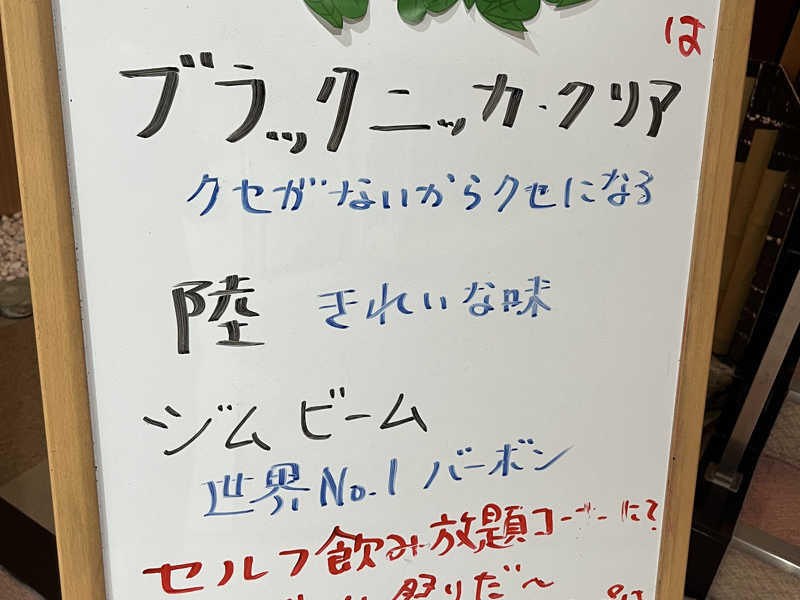 は
ブラックニッカ・クリア
クセがないからクセになる
陸 きれいな味
ジムビーム
世界No.1 バーボン
セルフ飲み放題コーナーにて
祭りだ〜